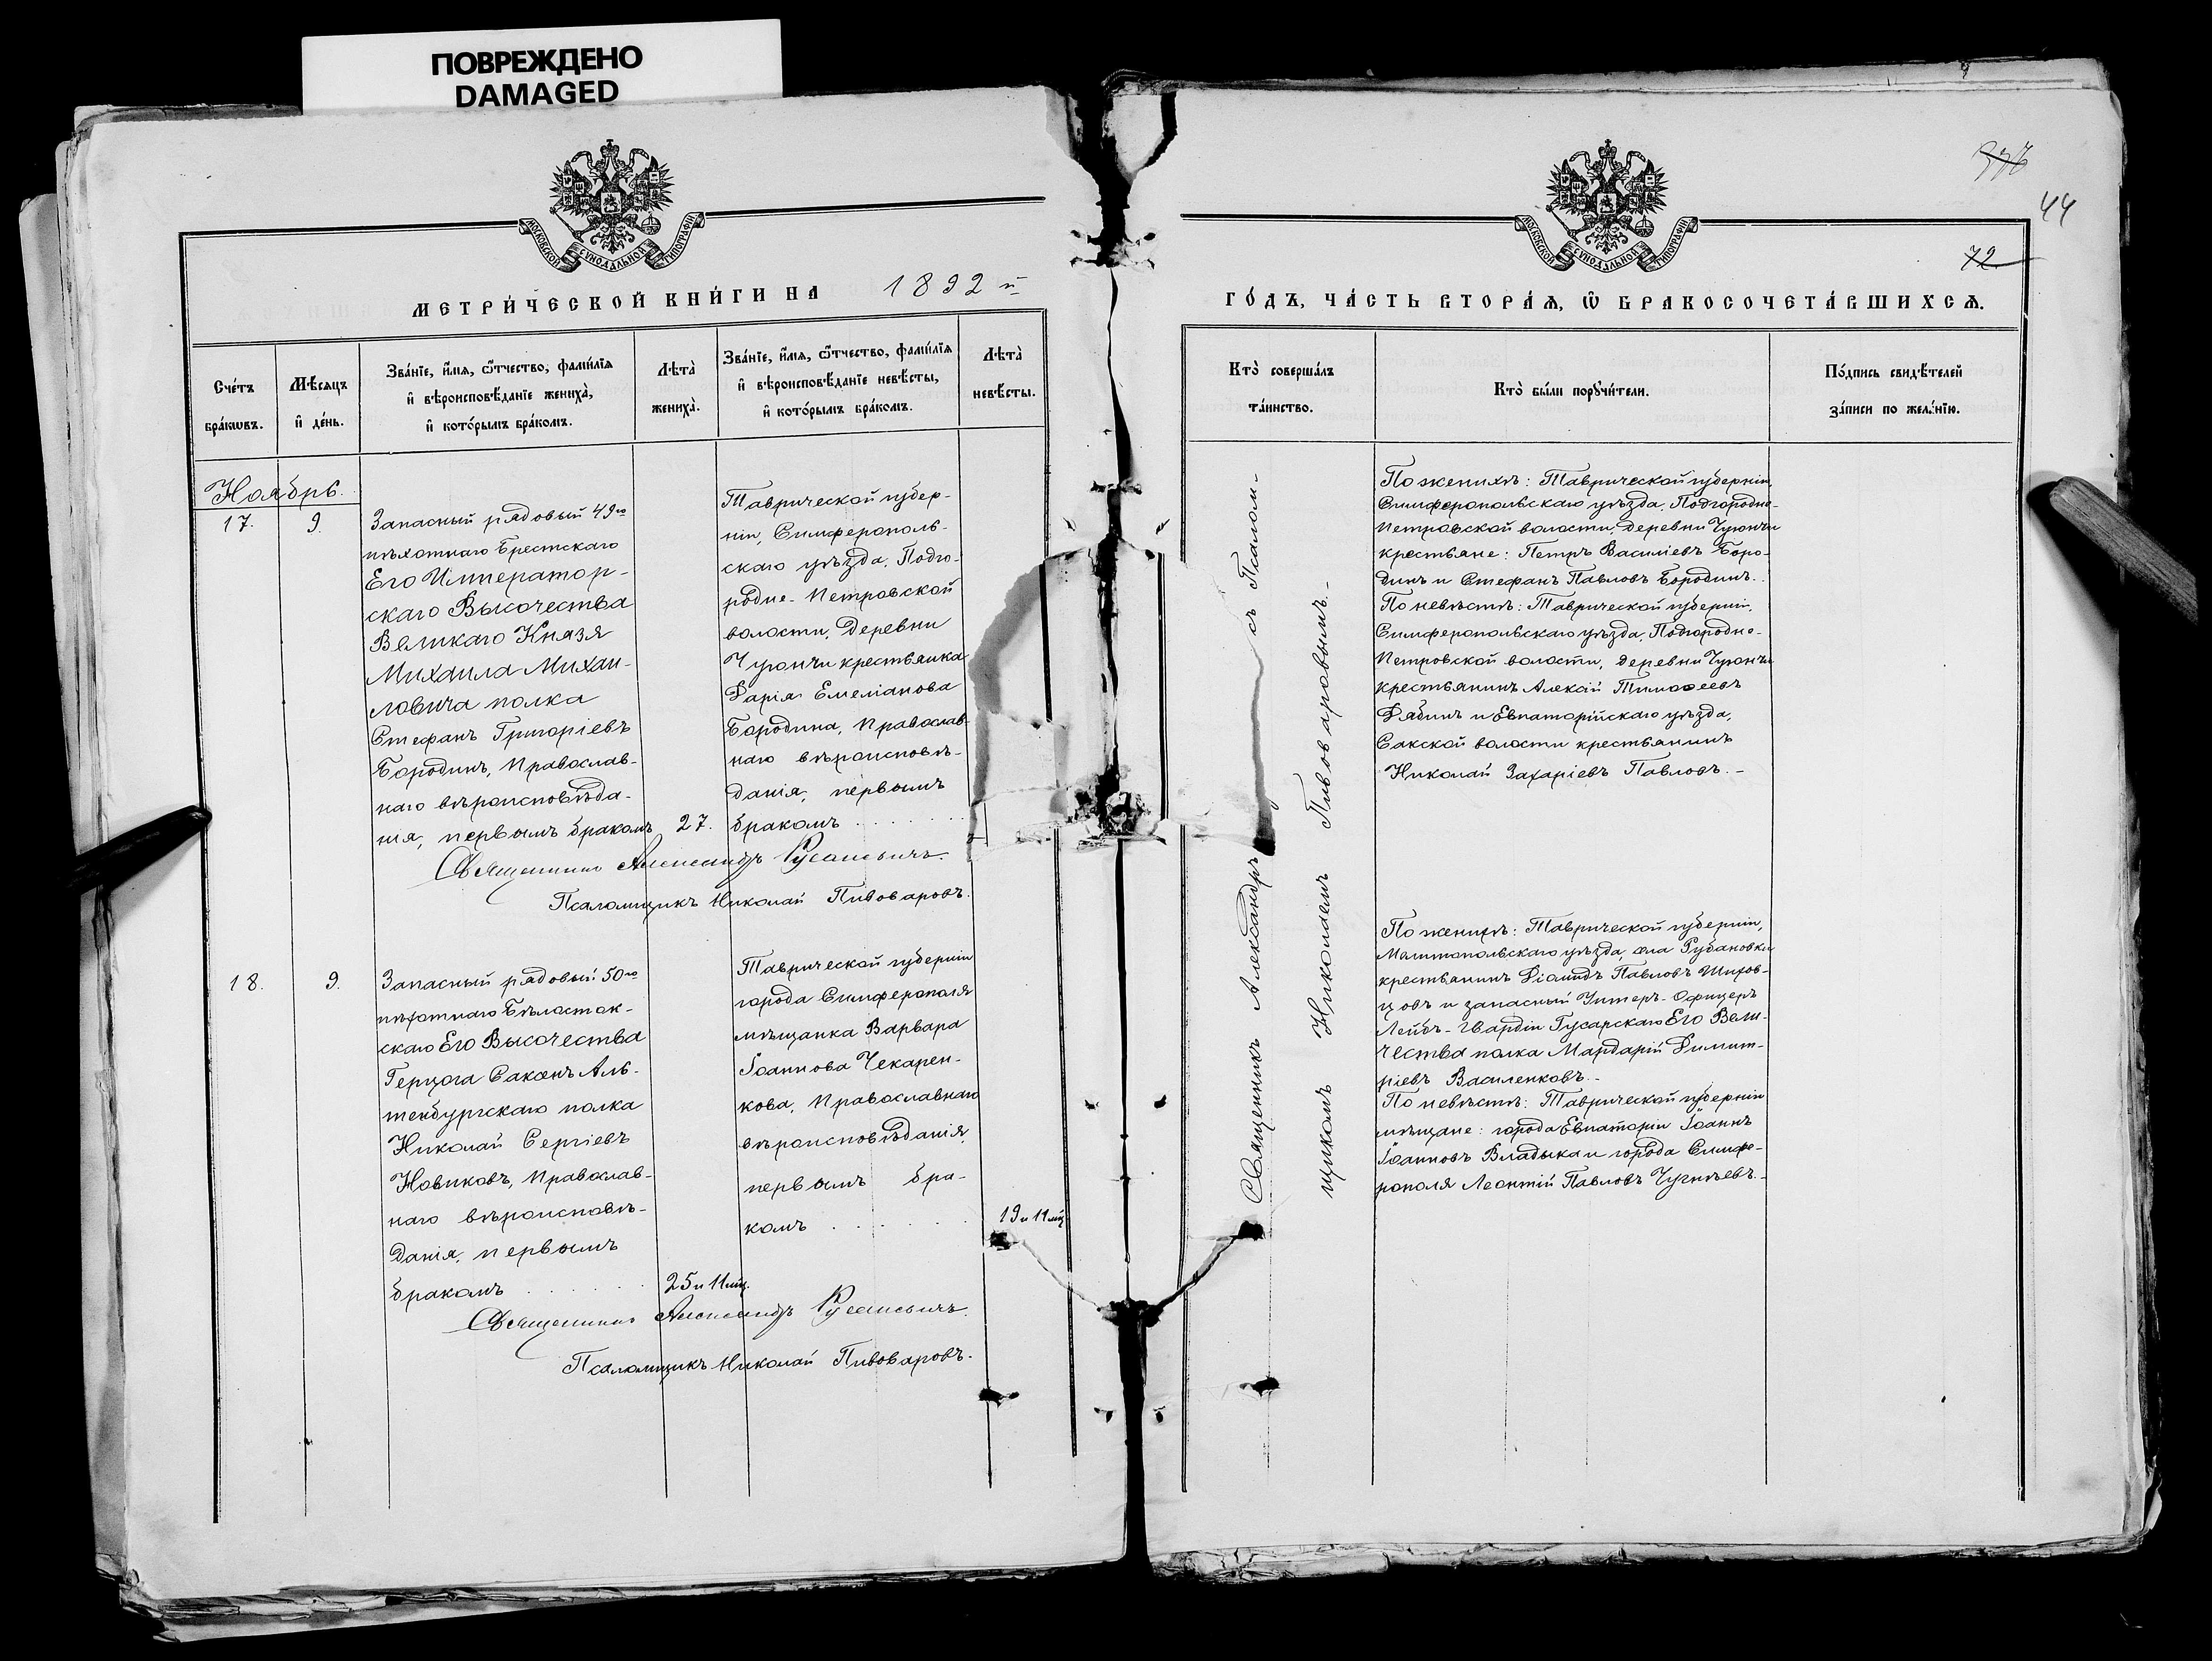 ПОВРЕЖДЕНО
DAMAGED
МОСКОВСКОЙ СѴНОДАЛЬНОЙ ТИПОГРАФІИ
МЕТРИ́ЧЕСКОЙ КНИ́ГИ НА 1892 й
Сче́тъ бра́кѡвъ.
Мѣ́сяцъ и҆ де́нь.
Зва́нїе, и҆́мѧ, ѻ҆́тчество, фами́лїѧ
и҆ вѣроисповѣ́данїе жениха̀,
и҆ кото́рымъ бра́комъ.
Лѣта̀ жениха̀.
Зва́нїе, и҆́мѧ, ѻ҆́тчество, фами́лїѧ
и҆ вѣроисповѣ́данїе невѣ́сты,
и҆ кото́рымъ бра́комъ.
Лѣта̀ невѣ́сты.
Ноябрь.
17.
9.
Запасный рядовый 49го
пѣхотнаго Брестскаго
Его Император-
скаго Высочества
Великаго Князя
Михаила Михаи-
ловича полка
Стефанъ Григоріевъ
Бородинъ, Православ-
наго вѣроисповѣда-
нія, первымъ бракомъ
27.
Таврической губер-
ніи, Симферополь-
скаго уѣзда, Подго-
родне-Петровской
волости, Деревни
Чуюнчи крестьянка
Дарія Емеліанова
Бородина, Православ-
наго вѣроисповѣ-
данія, первымъ
бракомъ
Священникъ Александръ Русаневичъ.
Псаломщикъ Николай Пивоваровъ.
18.
9.
Запасный рядовый 50го
пѣхотнаго Бѣлосток-
скаго Его Высочества
Герцога Саксенъ Аль-
тенбургскаго полка
Николай Сергіевъ
Новиковъ, Православ-
наго вѣроисповѣ-
данія, первымъ
бракомъ
25 и 11 мц.
Таврической губерніи
города Симферополя
мѣщанка Варвара
Іоаннова Чекарен-
кова, Православнаго
вѣроисповѣданія,
первымъ бра-
комъ
19 и 11 мц
Священникъ Александръ Русаневичъ.
Псаломщикъ Николай Пивоваровъ.
44
72
МОСКОВСКОЙ СѴНОДАЛЬНОЙ ТИПОГРАФІИ
ГО́ДЪ, ЧА́СТЬ ВТОРА́Ѧ, Ѽ БРАКОСОЧЕТА́ВШИХСѦ.
Кто̀ соверша́лъ
та́инство.
Кто̀ бы́ли порꙋчи́тели.
По́дпись свидѣ́телей
за́писи по жела́нїю.
Священникъ Александръ съ Псалом-
щикомъ Николаемъ Пивоваровымъ.-
По женихѣ: Таврической губерніи,
Симферопольскаго уѣзда, Подгородне-
Петровской волости, деревни Чуюнчи
крестьяне: Петръ Василіевъ Боро-
динъ и Стефанъ Павловъ Бородинъ.
По невѣстѣ: Таврической губерніи,
Симферопольскаго уѣзда, Подгородне-
Петровской волости, деревни Чуюнчи
крестьянинъ Алексій Тимоѳеевъ
Дябинъ и Евпаторійскаго уѣзда,
Сакской волости крестьянинъ
Николай Захаріевъ Павловъ.-
По женихѣ: Таврической губерніи,
Мелитопольскаго уѣзда, села Рубановки
крестьянинъ Діомидъ Павловъ
и запасный Унтеръ-Офицеръ
Лейбъ-Гвардіи Гусарскаго Его Вели-
чества полка Мардарій Димит-
ріевъ Василенковъ.-
По невѣстѣ: Таврической губерніи
мѣщане: города Евпаторіи Іоаннъ
Іоанновъ Владыка и города Симфе-
рополя Леонтій Павловъ